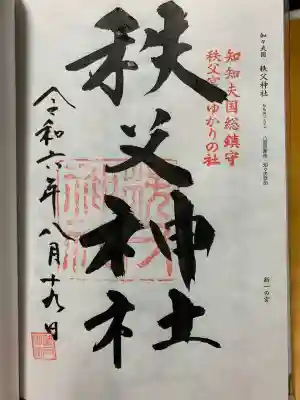 知々夫国 秩父神社
新一の宮
知知夫国総鎮守
ゆかりの社
秩父神社
令和六年八月十九日